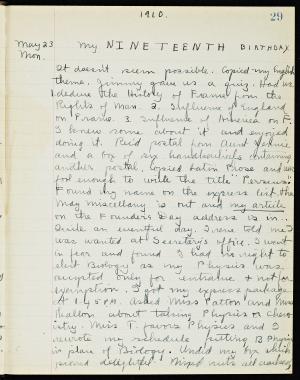 1910.
29
May 23
Mon.
My NINETEENTH BIRTHDAY.
It doesn't seem possible. Copied my English
theme. Jimmy gave us a quiz. Had us
deduce the History of France from the
Rights of Man. 2. Influence of England
on France. 3. Influence of America on F.
I knew some about it and enjoyed
doing it. Rec'd postal from Aunt Jennie
and a box of six handkerchiefs containing
another postal. Copied Latin Prose and was
fool enough to write the title "Perseus."
Found my name on the express list. The
May Miscellany is out and my article
on the Founder's Day address is in.
Quite an eventful day. Irene told me I
was wanted at Secretary's office. I went
in fear and found I had no right to
elect Biology as my Physics was
accepted only for entrance & not for
exemption. I got my express package
at 1.45 P.M. Asked Miss Patton and Miss
about taking Physics or Chem-
istry. Miss T. favors Physics and I
rewrote my schedule putting B Physics
in place of Biology. Undid my box which
proved delightful. Mixed nuts all